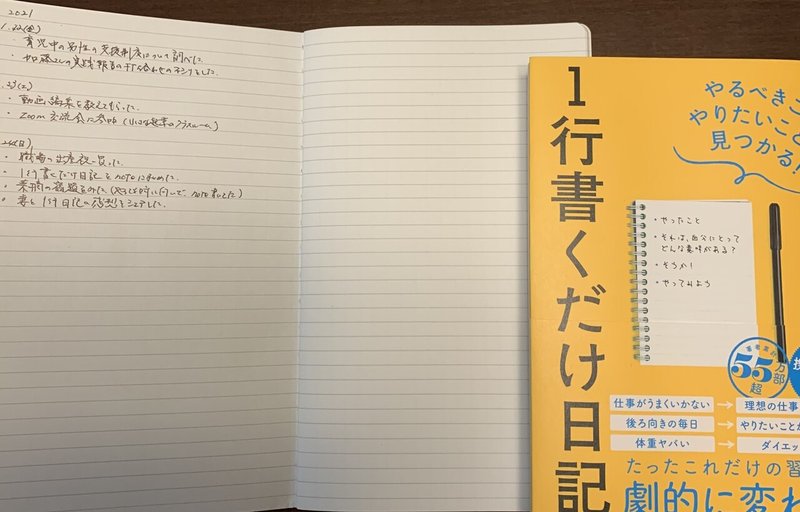 2021
1.22(金)
・育児中の男性の支援制度について調べた
・加藤さんの実践報告の打ち合わせの
・動画編集を教えてもらった.
・Zoom交流会に参加(
・出産祝い買った.
・1行書くだけ日記をnoteにまとめた.
・宿題をみた(
・妻と1行日記の感想をシェアした.
1行書くだけ日記
やるべきこ
やりたいこと
見つかる!
・やったこと
・それは、自分にとって
どんな意味がある?
・そうか!
・やってみよう
著者累計
55万部
超
仕事がうまくいかない → 理想の仕事
後ろ向きの毎日 → やりたいことが
体重ヤバい → ダイエッ
たったこれだけの習
劇的に変わ